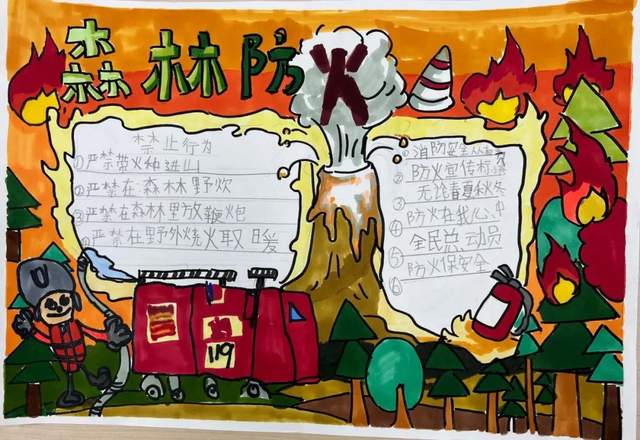 森林防火
禁止行为
①严禁带火种进山
②严禁在森林里野炊
③严禁在森林里放鞭炮
④严禁在野外烧火取暖
①消防安全人人
②防火宣传标
③无论春夏秋冬
④防火在我心中
⑤全民总动员
⑥防火保安全
119